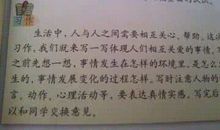 习作
生活中，人与人之间需要相互关心、帮助。这次
习作，我们就来写一写体现人们相互关爱的事情，写
之前先想一想，事情发生在怎样的环境里，是怎么发
生的，事情发展变化的过程怎样。写时注意人物的
言、动作、心理活动等，要表达真情实感，写完后
以和同学交换意见。